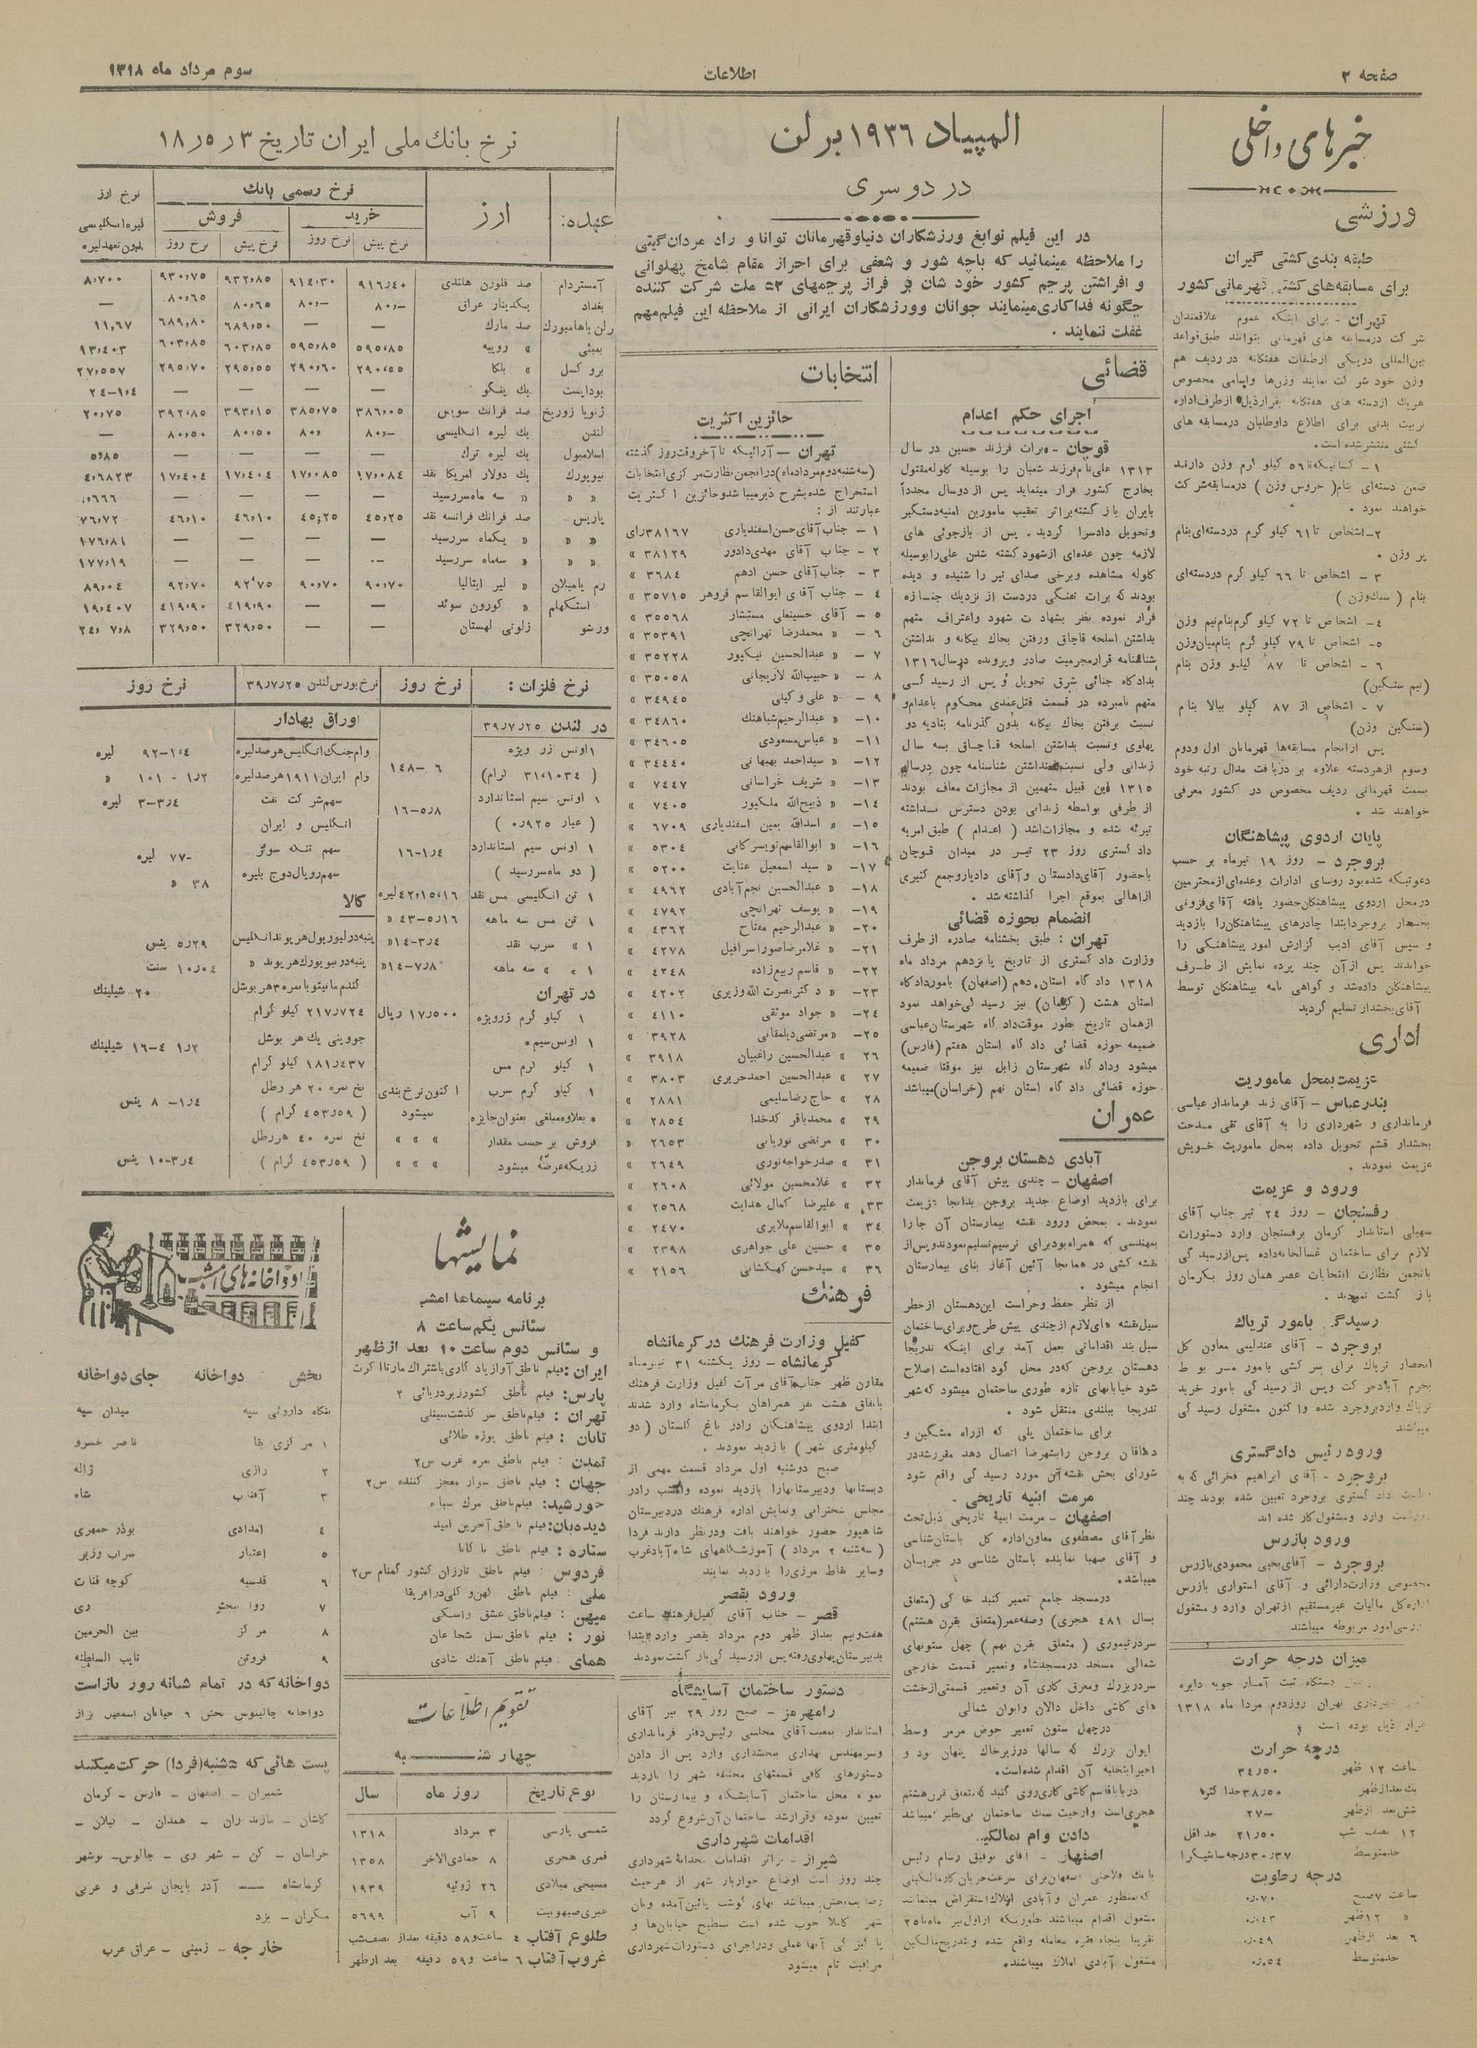 صفحه ۲
اطلاعات
سوم مرداد ماه ۱۳۱۸
خبرهای داخلی
ورزشی
طبقه بندی کشتی گیران
برای مسابقه‌های کشتی قهرمانی کشور
تهران - برای اینکه عموم علاقمندان
شرکت در مسابقه های قهرمانی بتوانند طبق قواعد
بین‌المللی در یکی از طبقات هفتگانه در ردیف هم
وزن خود شرکت نمایند وزن‌ها و اسامی مخصوص
هریک از دسته های هفتگانه بقرار ذیل از طرف اداره
تربیت بدنی برای اطلاع داوطلبان در مسابقه های
کشتی منتشر شده است.
۱ - کسانیکه تا ۵۶ کیلو گرم وزن دارند
ضمن دسته‌ای بنام (خروس وزن) در مسابقه شرکت
خواهند نمود.
۲- اشخاص تا ۶۱ کیلو گرم در دسته‌ای بنام
پر وزن.
۳ - اشخاص تا ۶۶ کیلو گرم در دسته‌ای
بنام (سبك وزن)
۴- اشخاص تا ۷۲ کیلو گرم بنام نیم وزن
۵- اشخاص تا ۷۹ کیلو گرم بنام میان وزن
۶ - اشخاص تا ۸۷ کیلو وزن بنام
(نیم سنگین)
۷ - اشخاص از ۸۷ کیلو ببالا بنام
(سنگین وزن)
پس از انجام مسابقه‌ها قهرمانان اول و دوم
و سوم از هر دسته علاوه بر دریافت مدال رتبه خود
بسمت قهرمانی ردیف مخصوص در کشور معرفی
خواهند شد.
پایان اردوی پیشاهنگان
بروجرد - روز ۱۹ تیرماه بر حسب
دعوتیکه شده بود روسای ادارات و عده‌ای از محترمین
در محل اردوی پیشاهنگان حضور یافته آقای قزونی
بخشدار بروجرد ابتدا چادرهای پیشاهنگان را بازدید
و سپس آقای ادیب گزارش امور پیشاهنگی را
خواندند پس از آن چند پرده نمایش از طرف
پیشاهنگان داده شد و گواهی نامه پیشاهنگان توسط
آقای بخشدار تسلیم گردید
اداری
عزیمت بمحل ماموریت
بندرعباس - آقای زند فرماندار عباسی
فرمانداری و شهرداری را به آقای تقی مدحت
بخشدار قشم تحویل داده بمحل ماموریت خویش
عزیمت نمودند.
ورود و عزیمت
رفسنجان - روز ۲۴ تیر جناب آقای
سهیلی استاندار کرمان برفسنجان وارد دستورات
لازم برای ساختمان غسالخانه داده پس از رسیدگی
بانجمن نظارت انتخابات عصر همان روز بکرمان
باز گشت نمودند.
رسیدگی بامور تریاك
بروجرد - آقای عندلیبی معاون کل
انحصار تریاك برای سرکشی بامور مربوط
بخرم آباد حرکت و پس از رسیدگی بامور خرید
تریاك وارد بروجرد شده و اکنون مشغول رسیدگی
میباشند
ورود رئیس دادگستری
بروجرد - آقای ابراهیم فخرائی که به
دادگستری بروجرد تعیین شده بودند چند
وارد و مشغول کار شده اند
ورود بازرس
بروجرد - آقای یحیی محمودی بازرس
مخصوص وزارت دارائی و آقای استواری بازرس
اداره کل مالیات غیر مستقیم از تهران وارد و مشغول
بررسی امور مربوطه میباشند
میزان درجه حرارت
دستگاه ثبت آمار جویه دایره
تهران روز دوم مرداد ماه ۱۳۱۸
بقرار ذیل بوده است
درجه حرارت
ساعت ۱۲ ظهر ۳۴٫۵۰
یك بعد از ظهر ۳۸٫۵۰ حد اکثر
شش بعد از ظهر ۲۷-
۱۲ نصف شب ۲۱٫۵۰ حد اقل
حد متوسط ۳۰٫۳۷ درجه سانتیگراد
درجه رطوبت
ساعت ۷ صبح ۰٫۷۰
» ۱۲ ظهر ۰٫۴۳
۶ بعد از ظهر ۰٫۴۹
حد متوسط ۰٫۵۴
المپیاد ۱۹۳۶ برلن
در دو سری
در این فیلم نوابغ ورزشکاران دنیا و قهرمانان توانا و راد مردان گیتی
را ملاحظه مینمائید که باچه شور و شعفی برای احراز مقام شامخ پهلوانی
و افراشتن پرچم کشور خود شان بر فراز پرچمهای ۵۲ ملت شرکت کننده
چگونه فداکاری مینمایند جوانان و ورزشکاران ایرانی از ملاحظه این فیلم مهم
غفلت ننمایند.
قضائی
اجرای حکم اعدام
قوچان - برات فرزند حسین در سال
۱۳۱۳ علی نام فرزند شعبان را بوسیله گلوله مقتول
بخارج کشور فرار مینماید پس از دو سال مجدداً
بایران باز گشته براثر تعقیب مامورین امنیه دستگیر
و تحویل دادسرا گردید. پس از بازجوئی های
لازمه چون عده‌ای از شهود کشته شدن علی را بوسیله
گلوله مشاهده و برخی صدای تیر را شنیده و دیده
بودند که برات تفنگی در دست از نزدیك جنازه
فرار نموده نظر بشهادت شهود و اعتراف متهم
بداشتن اسلحه قاچاق و رفتن بخاك بیگانه و نداشتن
شناسنامه قرار مجرمیت صادر و پرونده در سال ۱۳۱۶
بدادگاه جنائی شرق تحویل و پس از رسیدگی
متهم نامبرده در قسمت قتل عمدی محکوم باعدام و
نسبت برفتن بخاك بیگانه بدون گذرنامه بتادیه دو
پهلوی و نسبت بداشتن اسلحه قاچاق بسه سال
زندانی ولی نسبت بنداشتن شناسنامه چون در سال
۱۳۱۵ این قبیل متهمین از مجازات معاف بودند
از طرفی بواسطه زندانی بودن دسترس نداشته
تبرئه شده و مجازات اشد (اعدام) طبق امریه
داد گستری روز ۲۳ تیر در میدان قوچان
با حضور آقای دادستان و آقای دادیار و جمع کثیری
از اهالی بموقع اجرا گذاشته شد.
انضمام بحوزه قضائی
تهران : طبق بخشنامه صادره از طرف
وزارت داد گستری از تاریخ پانزدهم مرداد ماه
۱۳۱۸ داد گاه استان دهم (اصفهان) بامور دادگاه
استان هشت (کرمان) نیز رسیدگی خواهد نمود
از همان تاریخ بطور موقت داد گاه شهرستان عباسی
ضمیمه حوزه قضائی داد گاه استان هفتم (فارس)
میشود و داد گاه شهرستان زابل نیز موقتا ضمیمه
حوزه قضائی داد گاه استان نهم (خراسان) میباشد
عمران
آبادی دهستان بروجن
اصفهان - چندی پیش آقای فرماندار
برای بازدید اوضاع جدید بروجن بدانجا عزیمت
نمودند. بمحض ورود نقشه بیمارستان آن جا را
بمهندسی که همراه بود برای ترسیم تسلیم نمودند و پس از
نقشه کشی در همانجا آئین آغاز بنای بیمارستان
انجام میشود.
از نظر حفظ و حراست این دهستان از خطر
سیل نقشه های لازم از چندی پیش طرح و برای ساختمان
سیل بند اقداماتی بعمل آمد برای اینکه تدریجا
دهستان بروجن که در محل گود افتاده است اصلاح
شود خیابانهای تازه طوری ساختمان میشود که شهر
تدریجا ببلندی منتقل شود.
برای ساختمان پلی که از راه مشگین و
دهاقان بروجن را بشهرضا اتصال دهد مقرر شد در
شورای بخش نقشه آن مورد رسیدگی واقع شود
مرمت ابنیه تاریخی.
اصفهان - مرمت ابنیه تاریخی ذیل تحت
نظر آقای مصطفوی معاون اداره کل باستان شناسی
و آقای صهبا نماینده باستان شناسی در جریان
میباشد.
در مسجد جامع تعمیر گنبد خاکی (متعلق
بسال ۴۸۱ هجری) و صفه عمر (متعلق بقرن هشتم)
سردر تیموری (متعلق بقرن نهم) چهل ستونهای
شمالی مسجد در مسجد شاه و تعمیر قسمت خارجی
سردر بزرك و معرق کاری آن و تعمیر قسمتی از خشت
های کاشی داخل دالان و ایوان شمالی
در چهل ستون تعمیر حوض مرمر وسط
ایوان بزرك که سالها در زیر خاك پنهان بود و
اخیرا بتخلیه آن اقدام شده است.
در بابا قاسم کاشی کاری روی گنبد که متعلق بقرن هشتم
هجری است و از حیث سبك ساختمان بی نظیر میباشد
دادن وام بمالکین
اصفهان - آقای توفیق رسام رئیس
بانك فلاحتی اصفهان برای سرعت جریان کار مالکینی
که بمنظور عمران و آبادی املاك استقراض مینمایند
مشغول اقدام میباشند بطوریکه از اول تیر ماه تا ۲۵
تقریبا پنجاه فقره معامله واقع شده و بتدریج مالکین
مشغول آبادی املاك میباشند.
انتخابات
حائزین اکثریت
تهران - آرائیکه تا آخر وقت روز گذشته
(سه شنبه دوم مرداد ماه) در انجمن نظارت مرکزی انتخابات
استخراج شده بشرح ذیر میباشد و حائزین اکثریت
عبارتند از :
۱ - جناب آقای حسن اسفندیاری ۳۸۱۶۷ رای
۲ - جناب آقای مهدی دادور ۳۸۱۲۹ »
۳ - جناب آقای حسن ادهم ۳۶۸۴ »
۴ - جناب آقای ابوالقاسم فروهر ۳۵۷۱۵ »
۵ - آقای حسینعلی مستشار ۳۵۵۶۸ »
۶ - » محمدرضا تهرانچی ۳۵۳۹۱ »
۷ - » عبدالحسین نیکپور ۳۵۲۲۸ »
۸ - » حبیب‌الله لاریجانی ۳۵۰۵۸ »
۹ - » علی وکیلی ۳۴۹۴۵ »
۱۰- » عبدالرحیم شباهنك ۳۴۸۶۰ »
۱۱- » عباس مسعودی ۳۴۶۰۵ »
۱۲- » سید احمد بهبهانی ۳۴۴۴۰ »
۱۳- » شریف خراسانی ۷۴۴۷ »
۱۴- » ذبیح‌الله ملکپور ۷۴۰۵ »
۱۵- » اسدالله یمین اسفندیاری ۶۷۰۹ »
۱۶- » ابوالقاسم تویسرکانی ۵۳۰۴ »
۱۷- » سید اسمعیل عنایت ۵۲۰۰ »
۱۸- » عبدالحسین نجم آبادی ۴۹۶۲ »
۱۹- » یوسف تهرانچی ۴۷۹۲ »
۲۰- » عبدالرحیم مفتاح ۴۳۶۲ »
۲۱- » غلامرضا صور اسرافیل ۴۲۷۸ »
۲۲- » قاسم ربیع زاده ۴۲۴۸ »
۲۳- » دکتر نصرت الله وزیری ۴۲۰۲ »
۲۴- » جواد موثقی ۴۱۱۰ »
۲۵- » مرتضی دیلمقانی ۳۹۲۸ »
۲۶ » عبدالحسین راغبیان ۳۹۱۸ »
۲۷ » عبدالحسین احمد حریری ۳۸۰۳ »
۲۸ » حاج رضا سلیمی ۲۸۸۱ »
۲۹ » محمدباقر کدخدا ۲۸۵۴ »
۳۰ » مرتضی نوریانی ۲۶۵۳ »
۳۱ » صدر خواجه نوری ۲۶۴۹ »
۳۲ » غلامحسین مولائی ۲۶۰۸ »
۳۳ » علیرضا کمال هدایت ۲۵۶۸ »
۳۴ » ابوالقاسم ملایری ۲۴۷۰ »
۳۵ » حسین علی جواهری ۲۳۹۸ »
۳۶ » سید حسن کهکشانی ۲۱۵۶ »
فرهنك
کفیل وزارت فرهنك در کرمانشاه
کرمانشاه - روز یکشنبه ۳۱ تیرماه
مقارن ظهر جناب آقای مرآت کفیل وزارت فرهنك
باتفاق هشت نفر همراهان بکرمانشاه وارد شدند
ابتدا اردوی پیشاهنگان را در باغ گلستان (دو
کیلومتری شهر) بازدید نمودند.
صبح دوشنبه اول مرداد قسمت مهمی از
دبستانها و دبیرستانها را بازدید نموده و امشب را در
مجلس سخنرانی و نمایش اداره فرهنك در دبیرستان
شاهپور حضور خواهند یافت و در نظر دارند فردا
(سه شنبه ۲ مرداد) آموزشگاههای شاه آباد غرب
و سایر نقاط مرزی را بازدید نمایند
ورود بقصر
قصر - جناب آقای کفیل فرهنك ساعت
هفت و نیم بعد از ظهر دوم مرداد بقصر وارد ابتدا
بدبیرستان پهلوی رفته پس از رسیدگی باز گشت نمودند
دستور ساختمان آسایشگاه
رامهرمز - صبح روز ۲۹ تیر آقای
استاندار بمعیت آقای مجلسی رئیس دفتر فرمانداری
و سرمهندس بهداری ببخشداری وارد پس از دادن
دستورهای کافی قسمتهای مختلفه شهر را بازدید
نموده محل ساختمان آسایشگاه و بیمارستان را
تعیین نموده و قرار شد ساختمان آن شروع گردد
اقدامات شهرداری
شیراز - براثر اقدامات مجدانه شهرداری
چند روز است اوضاع خواربار شهر از هر حیث
رضایت بخش میباشد بهای گوشت پائین آمده و نان
شهر کاملا خوب شده است تسطیح خیابان‌ها و
پاکیزگی آنها عملی و در اجرای دستورات شهرداری
مراقبت تام میشود
نرخ بانك ملی ایران تاریخ ۳ر۵ر۱۸
عهده: ارز نرخ رسمی بانك نرخ ارز
خرید فروش لیره انگلیسی
نرخ پیش نرخ روز نرخ پیش نرخ روز بدون تعهد لیره
آمستردام صد فلورن هلندی ۹۱۶٫۴۰ ۹۱۴٫۳۰ ۹۳۲٫۸۵ ۹۳۰٫۷۵ ۸٫۷۰۰
بغداد یکدینار عراق ۸۰٫- ۸۰٫- ۸۰٫۶۵ ۸۰٫۶۵ —
برلن یا هامبورك صد مارك — — ۶۸۹٫۵۰ ۶۸۹٫۸۰ ۱۱٫۶۷
بمبئی » روپیه ۵۹۵٫۸۵ ۵۹۵٫۸۵ ۶۰۳٫۸۵ ۶۰۳٫۸۵ ۱۳٫۴۰۳
بروکسل » بلگا ۲۹۰٫۵۵ ۲۹۰٫۶۰ ۲۹۵٫۵۵ ۲۹۵٫۷۰ ۲۷٫۵۵۷
بوداپست یك پنگو — — — — ۲۴-۱٫۴
ژنو یا زوریخ صد فرانك سویس ۳۸۶٫۰۵ ۳۸۵٫۷۵ ۳۹۳٫۱۵ ۳۹۲٫۸۵ ۲۰٫۷۵
لندن یك لیره انگلیسی ۸۰٫- ۸۰٫ ۸۰٫۵۰ ۸۰٫۵۰ —
اسلامبول یك لیره ترك — — — — ۵٫۸۵
نیویورك یك دولار امریکا نقد ۱۷٫۰۸۴ ۱۷٫۰۸۵ ۱۷٫۴۰۴ ۱۷٫۴۰۴ ۴٫۶۸۲۳
» » سه ماه سررسید — — — — ٫۶۶۶
پاریس صد فرانك فرانسه نقد ۴۵٫۲۵ ۴۵٫۲۵ ۴۶٫۱۰ ۴۶٫۱۰ ۱۷۶٫۷۲
» » یکماه سررسید — — — — ۱۷۶٫۸۱
» » سه‌ماه سررسید — — — — ۱۷۷٫۱۹
رم یا میلان » لیر ایتالیا ۹۰٫۷۰ ۹۰٫۷۰ ۹۲٫۷۵ ۹۲٫۷۰ ۸۹٫۰۴
استکهلم » کورون سوئد — — ۴۱۹٫۹۰ ۴۱۹٫۹۰ ۱۹٫۴۰۷
ورشو زلوتی لهستان — — ۳۲۹٫۵۰ ۳۲۹٫۵۰ ۲۴٫۷٫۸
نرخ فلزات : نرخ روز
در لندن ۲۵ر۷ر۳۹
۱ اونس زر ویژه ۶ -۱۴۸
(۳۱٫۱۰۳۴ گرام)
۱ اونس سیم استاندارد ۵٫۸-۱۶
(عیار ۰٫۹۲۵)
۱ اونس سیم استاندارد ۱٫۴-۱۶
(دو ماه سررسید)
۱ تن انگلیسی مس نقد ۴۲٫۱۵٫۱۶ لیره
۱ تن مس سه ماهه ۵٫۱۶-۴۳ »
۱ » سرب نقد ۳٫۴-۱۴ »
۱ » » سه ماهه ۷٫۸-۱۴ »
در تهران
۱ کیلو گرم زر ویژه ۱۷٫۵۰۰ ریال
۱ اونس سیم*
۱ کیلو گرم مس
۱ کیلو گرم سرب اکنون نرخ بندی
* بعلاوه مبلغی بعنوان جایزه نمیشود
فروش بر حسب مقدار » » »
زریکه عرضه میشود » » »
نرخ بورس لندن ۲۵ر۷ر۳۹ نرخ روز
اوراق بهادار
وام جنك انگلیس هر صد لیره ۱٫۴-۹۲ لیره
وام ایران ۱۹۱۱ هر صد لیره ۱٫۲ - ۱۰۱ »
سهم شرکت نفت ۳٫۴-۳ لیره
انگلیس و ایران
سهم تنگه سوئز ۷۷- لیره
سهم رویال دوج بلیره ۳۸ »
کالا
پنبه در لیورپول هر پوند انگلیس ۵٫۲۹ پنس
پنبه در نیویورك هر پوند » ۱۰٫۰۴ سنت
گندم مانیتوبا نمره ۳ هر بوشل ۲۰ شیلینك
۲۱۷٫۷۲۴ کیلو گرام
جو وینی پك هر بوشل ۱٫۲ ۴-۱۶ شیلینك
۱۸۱٫۴۳۷ کیلو گرام
نخ نمره ۲۰ هر رطل ۱٫۴- ۸ پنس
(۴۵۳٫۵۹ گرام)
نخ نمره ۴۰ هر رطل ۳٫۴-۱۰ پنس
(۴۵۳٫۵۹ گرام)
نمایشها
برنامه سینماها امشب
سئانس یکم ساعت ۸
و سئانس دوم ساعت ۱۰ بعد از ظهر
ایران: فیلم ناطق آواز یادگاری باشتراك مارتا اگرت
پارس: فیلم ناطق کشور زیر دریائی ۲
تهران : فیلم ناطق سرگذشت سیتلی
تابان : فیلم ناطق پوزه طلائی
تمدن : فیلم ناطق نمره غرب س ۲
جهان: فیلم ناطق سوار معجز کننده س ۲
خورشید: فیلم ناطق مرك سیاه
دیده‌بان: فیلم ناطق آخرین امید
ستاره : فیلم ناطق ناگانا
فردوس : فیلم ناطق تارزان کشور گمنام س ۲
ملی : فیلم ناطق لهن و کلی در افریقا
میهن: فیلم ناطق عشق و اسکی
نور : فیلم ناطق نسل شجاعان
همای : فیلم ناطق آهنك شادی
تقویم اطلاعات
چهارشنبه
نوع تاریخ روز ماه سال
شمسی پارسی ۳ مرداد ۱۳۱۸
قمری هجری ۸ جمادی‌الاخر ۱۳۵۸
مسیحی میلادی ۲۶ ژوئیه ۱۹۳۹
عبری صیهونیت ۹ آب ۵۶۹۹
طلوع آفتاب ۴ ساعت و ۵۸ دقیقه بعد از نصف شب
غروب آفتاب ۶ ساعت و ۵۹ دقیقه بعد از ظهر
دواخانه‌های امشب
بخش دواخانه جای دواخانه
بنگاه داروئی سپه میدان سپه
۱ مرکزی بقا ناصر خسرو
۲ رازی ژاله
۳ آفتاب شاه
۴ امدادی بوذرجمهری
۵ اعتبار سراب وزیر
۶ قدسیه کوچه قنات
۷ روا بخش ری
۸ مرکز بین الحرمین
۹ فروتن نایب السلطنه
دواخانه که در تمام شبانه روز باز است
دواخانه جالینوس بخش ۶ خیابان اسمعیل بزاز
پست هائی که ۵شنبه (فردا) حرکت میکنند
شمیران - اصفهان - فارس - کرمان
کاشان - مازندران - همدان - گیلان -
خراسان - کن - شهر ری - چالوس - بوشهر
کرمانشاه —— آذربایجان شرقی و غربی
مکران - یزد
خارجه - زمینی - عراق عرب